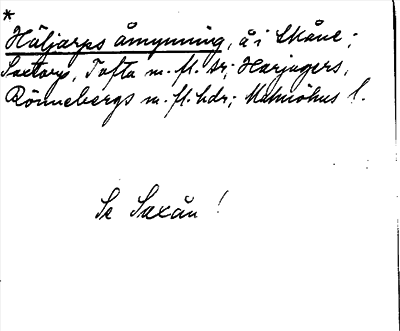 *
Häljarps åmynning, å i Skåne;
Saxtorps, Tofta m. fl. sr; Harjagers,
Rönnebergs m. fl. hdr; Malmöhus l.
Se Saxån!